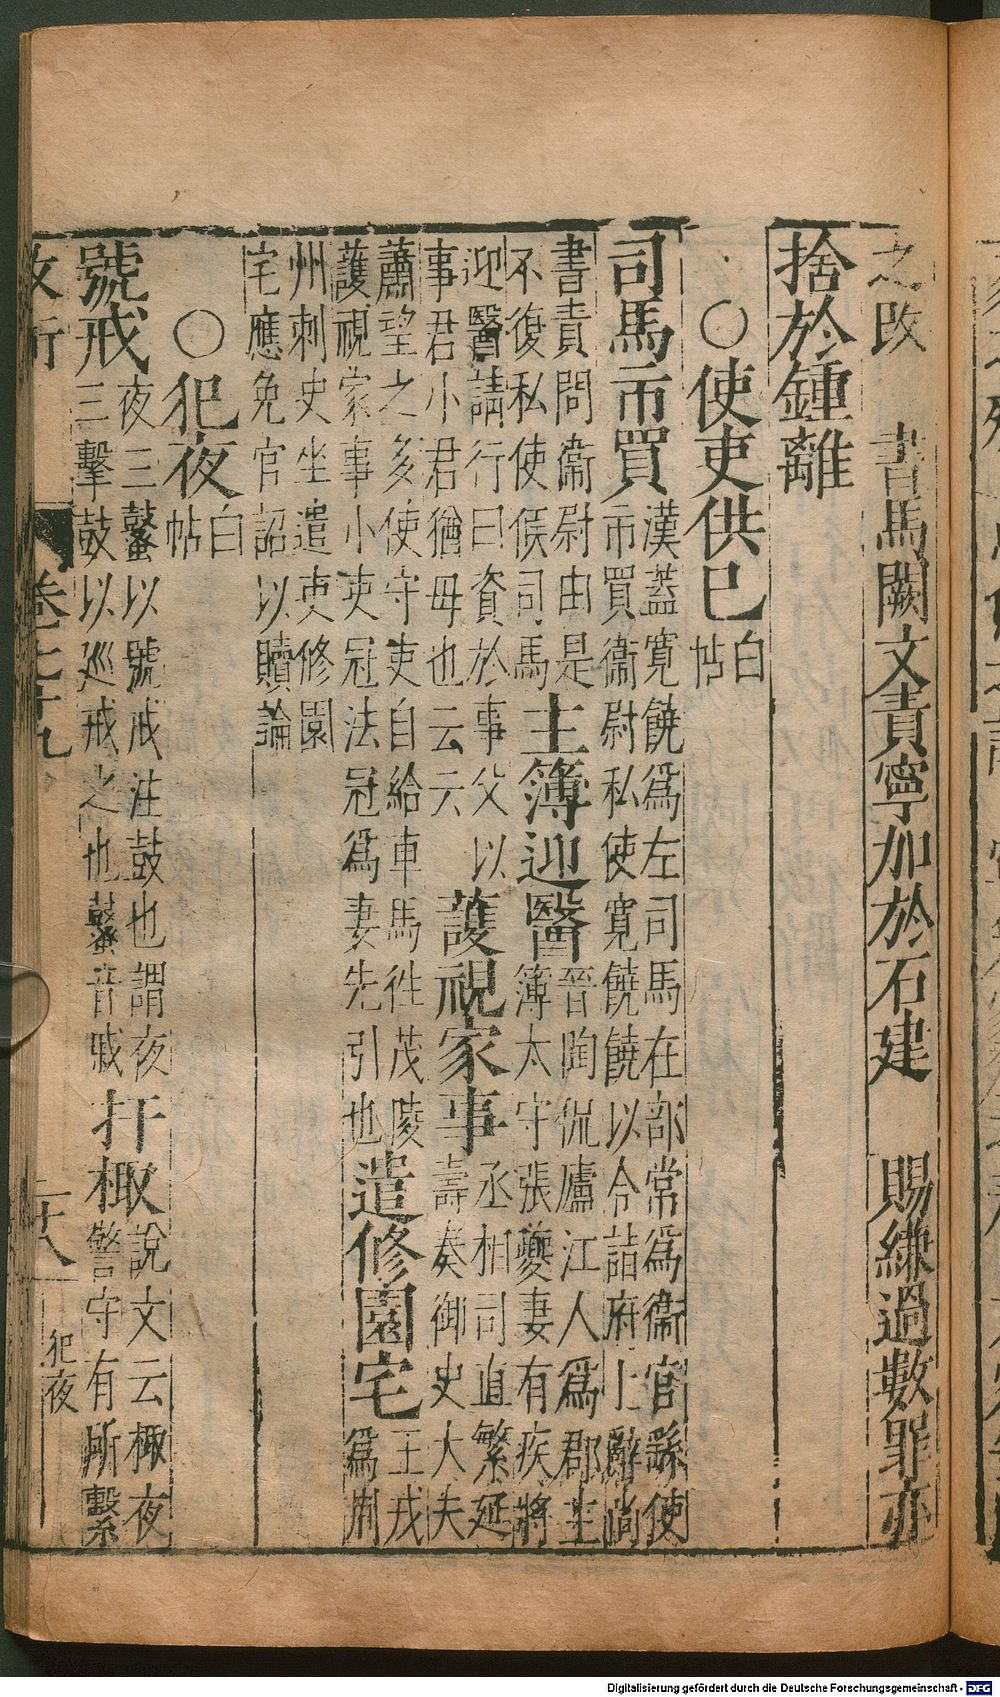 之改　書馬闕文責寧加於石建　賜縑過數罪亦
捨於鍾離
○使吏供已白帖
司馬市買漢蓋寬饒爲左司馬在部常爲衞官繇使
市買衞尉私使寬饒饒以令詣府上辭尚
書責問衞尉由是
不復私使候司馬主簿迎醫晉陶侃廬江人爲郡主
簿太守張夔妻有疾將
迎醫請行曰資於事父以
事君小君猶母也云云護視家事丞相司直繁延
壽奏御史大夫
蕭望之多使守吏自給車馬徃茂陵
護視家事小吏冠法冠爲妻先引也遣修園宅王戎
爲荆
州刺史坐遣吏修園
宅應免官詔以贖論
○犯夜白帖
號戒夜三鼜以號戒注鼓也謂夜
三擊鼓以巡戒之也鼜音戚扞棷說文云棷夜
警守有所擊
卷七十九
二十八
犯夜
Digitalisierung gefördert durch die Deutsche Forschungsgemeinschaft - DFG